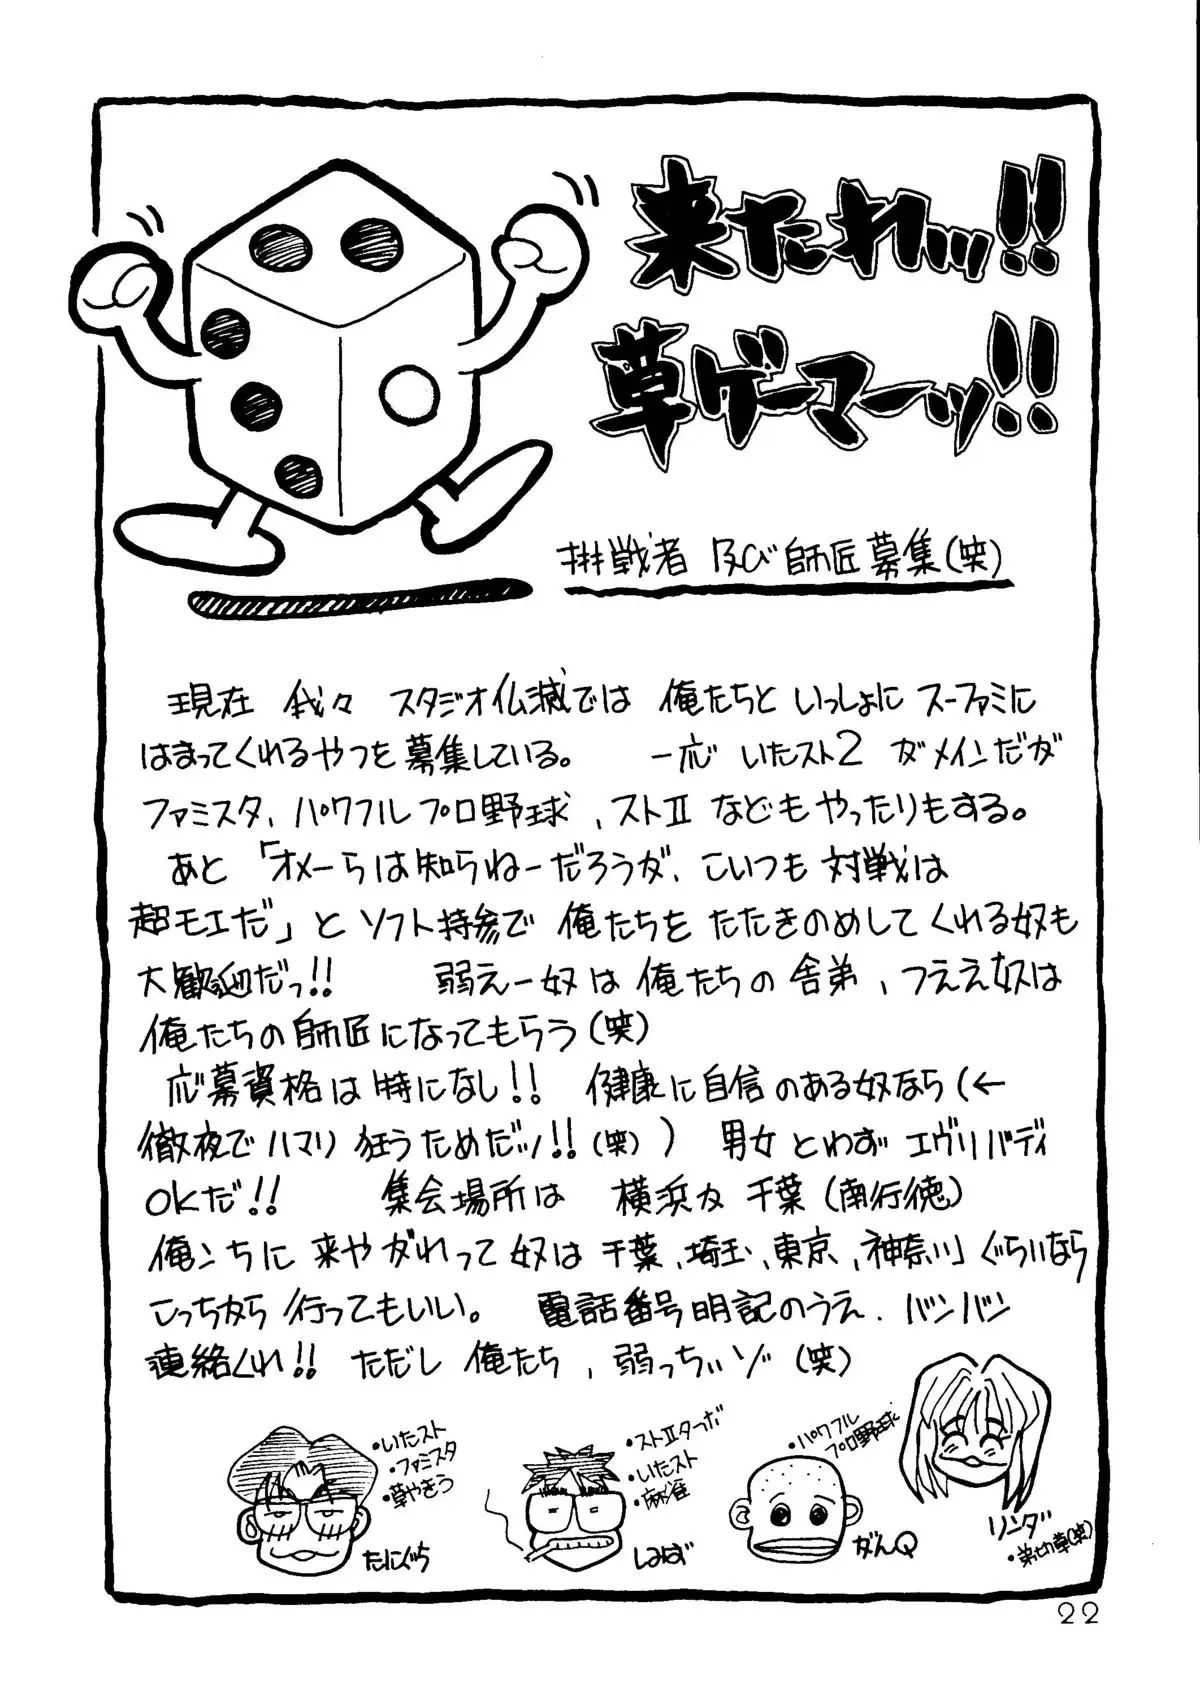 来たれッ!!
草ゲーマーッ!!
挑戦者 及び師匠募集(笑)
現在 我々 スタジオ仏滅では 俺たちと いっしょに スーファミに
はまってくれるやつを募集している。 一応 いたスト2 がメインだが
ファミスタ、パワフルプロ野球、ストⅡ などもやったりもする。
あと「オメーらは知らねーだろうが、こいつも 対戦は
超モエだ」と ソフト持参で 俺たちを たたきのめしてくれる奴も
大歓迎だっ!! 弱えー奴は俺たちの舎弟、つええ奴は
俺たちの師匠になってもらう(笑)
応募資格は特になし!! 健康に自信のある奴なら(←
徹夜でハマり狂うためだッ!!(笑)) 男女とわず エヴリバディ
OKだ!! 集会場所は 横浜か 千葉(南行徳)
俺ンちに 来やがれって 奴は 千葉、埼玉、東京、神奈川ぐらいなら
こっちから 行ってもいい。 電話番号明記のうえ、バンバン
連絡くれ!! ただし 俺たち、弱っちぃゾ(笑)
・いたスト
・ファミスタ
・草やきう
たにぐち
・ストⅡターボ
・いたスト
・麻雀
しみず
・パワフル
プロ野球
がんQ
リンダ